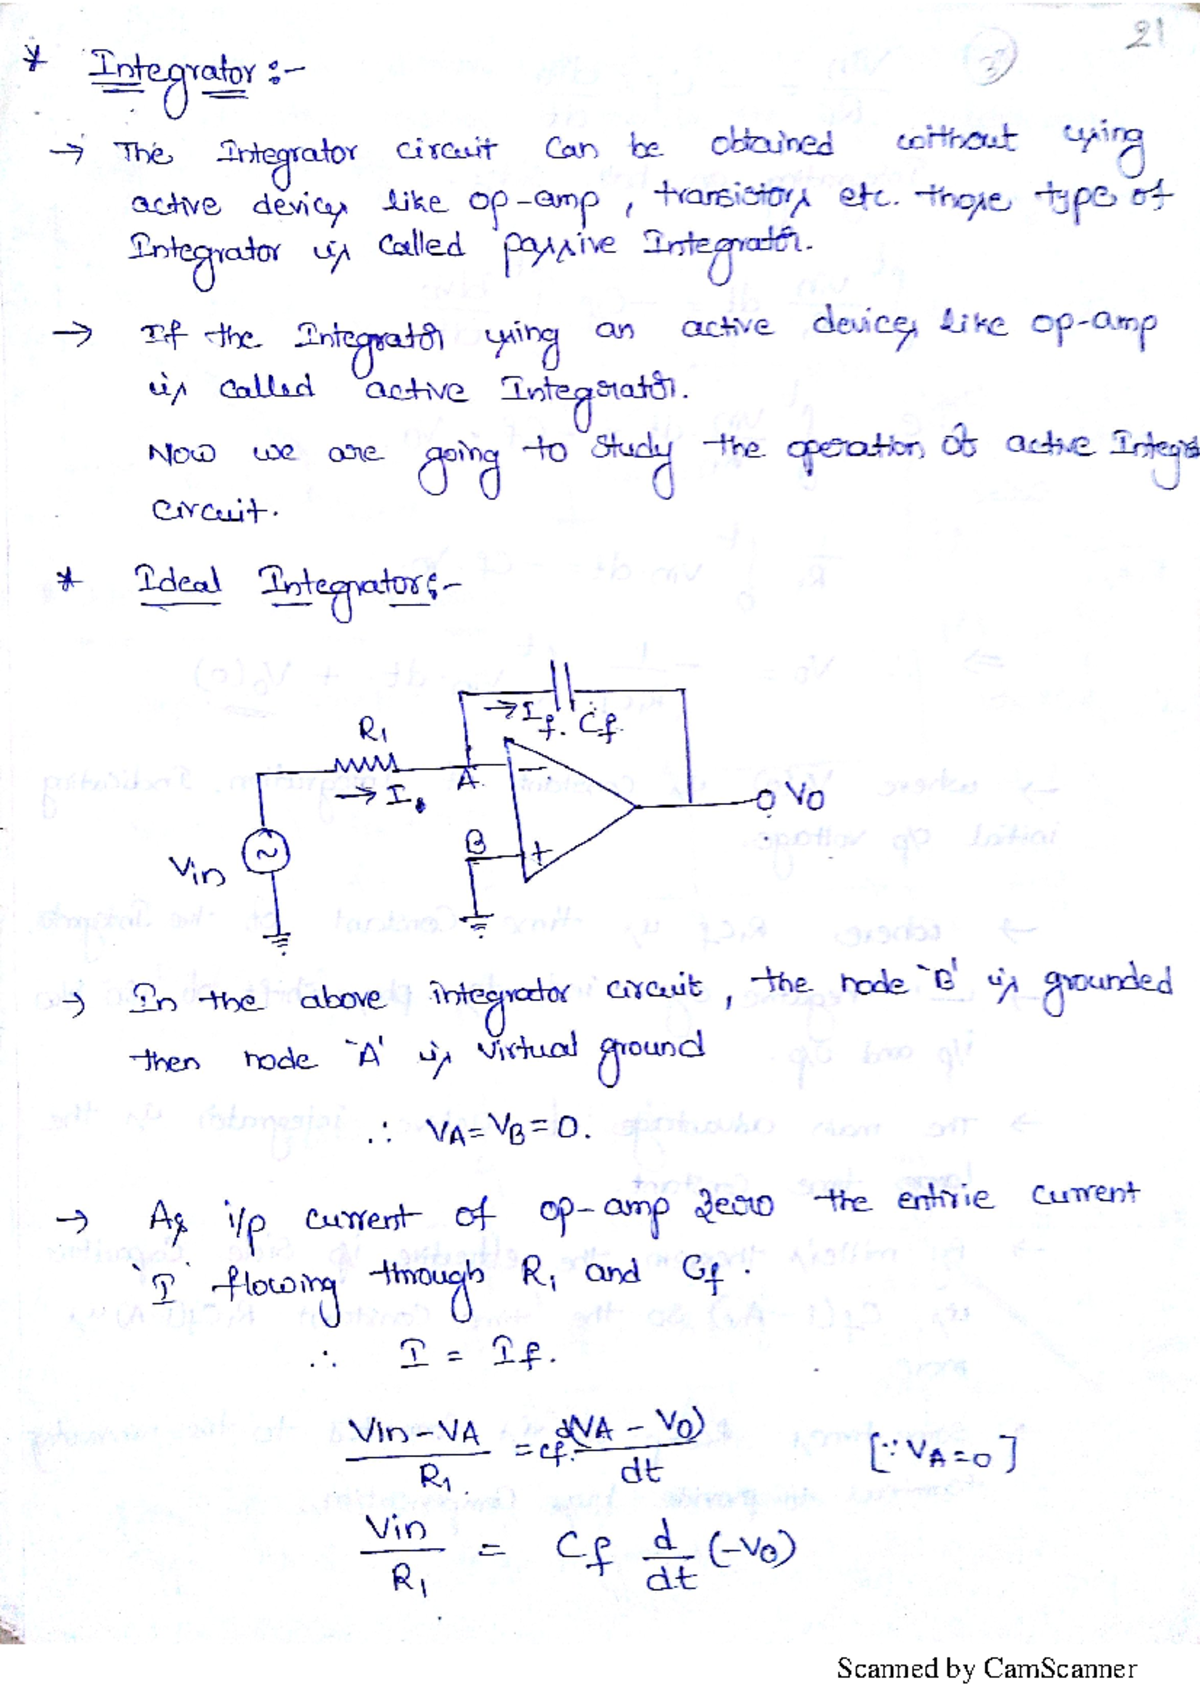 21
3
* Integrator :-
→ The Integrator circuit can be obtained without using
active devices like op-amp, transistors etc. those type of
Integrator is called passive Integrator.
→ If the Integrator using an active devices like op-amp
is called active Integrator.
Now we are going to study the operation of active Integra
circuit.
* Ideal Integrator :-
→ If. Cf.
R1
A
→ I
Vo
B
Vin
→ In the above integrator circuit, the node 'B' is grounded
then node 'A' is virtual ground
∴ VA = VB = 0.
→ As i/p current of op-amp zero the entirie current
'I' flowing through R1 and Cf.
∴ I = If.
Vin-VA / R1 = Cf. d(VA - Vo) / dt [∵ VA = 0]
Vin / R1 = Cf d/dt (-Vo)
Scanned by CamScanner